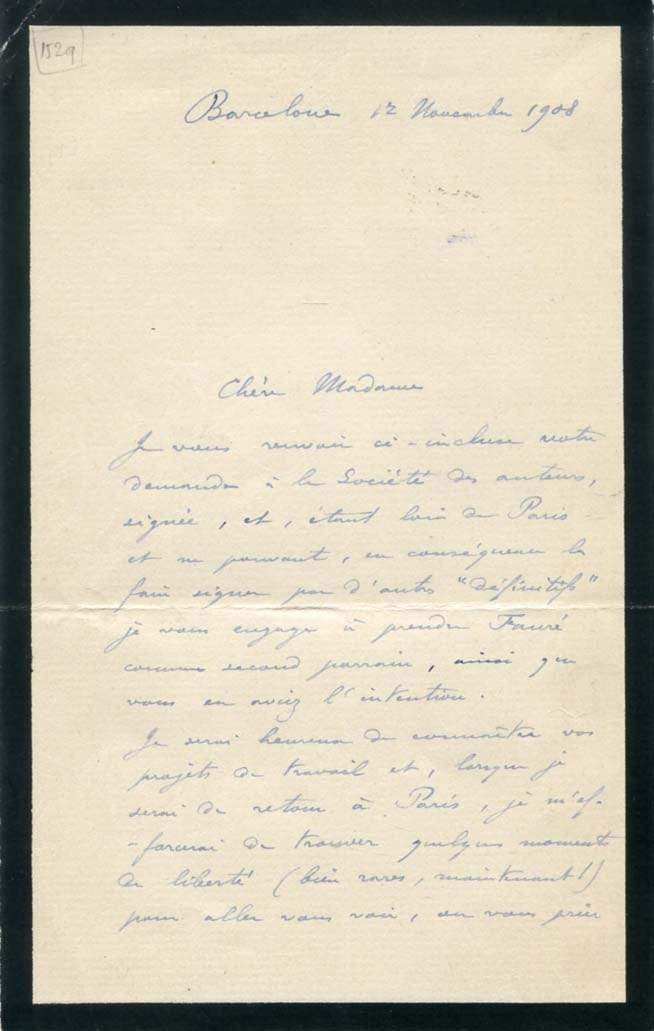 1529
Barcelone 12 Novembre 1908
Chère Madame
Je vous renvoie ci-incluse votre
demande à la Société des auteurs,
signée, et, étant loin de Paris
et ne pouvant, en conséquence la
faire signer par d'autres "définitifs"
je vous engage à prendre Fauré
comme second parrain, ainsi que
vous en aviez l'intention.
Je serai heureux de connaître vos
projets de travail et, lorsque je
serai de retour à Paris, je m'ef-
-forcerai de trouver quelques moments
de liberté (bien rares, maintenant!)
pour aller vous voir, ou vous prier